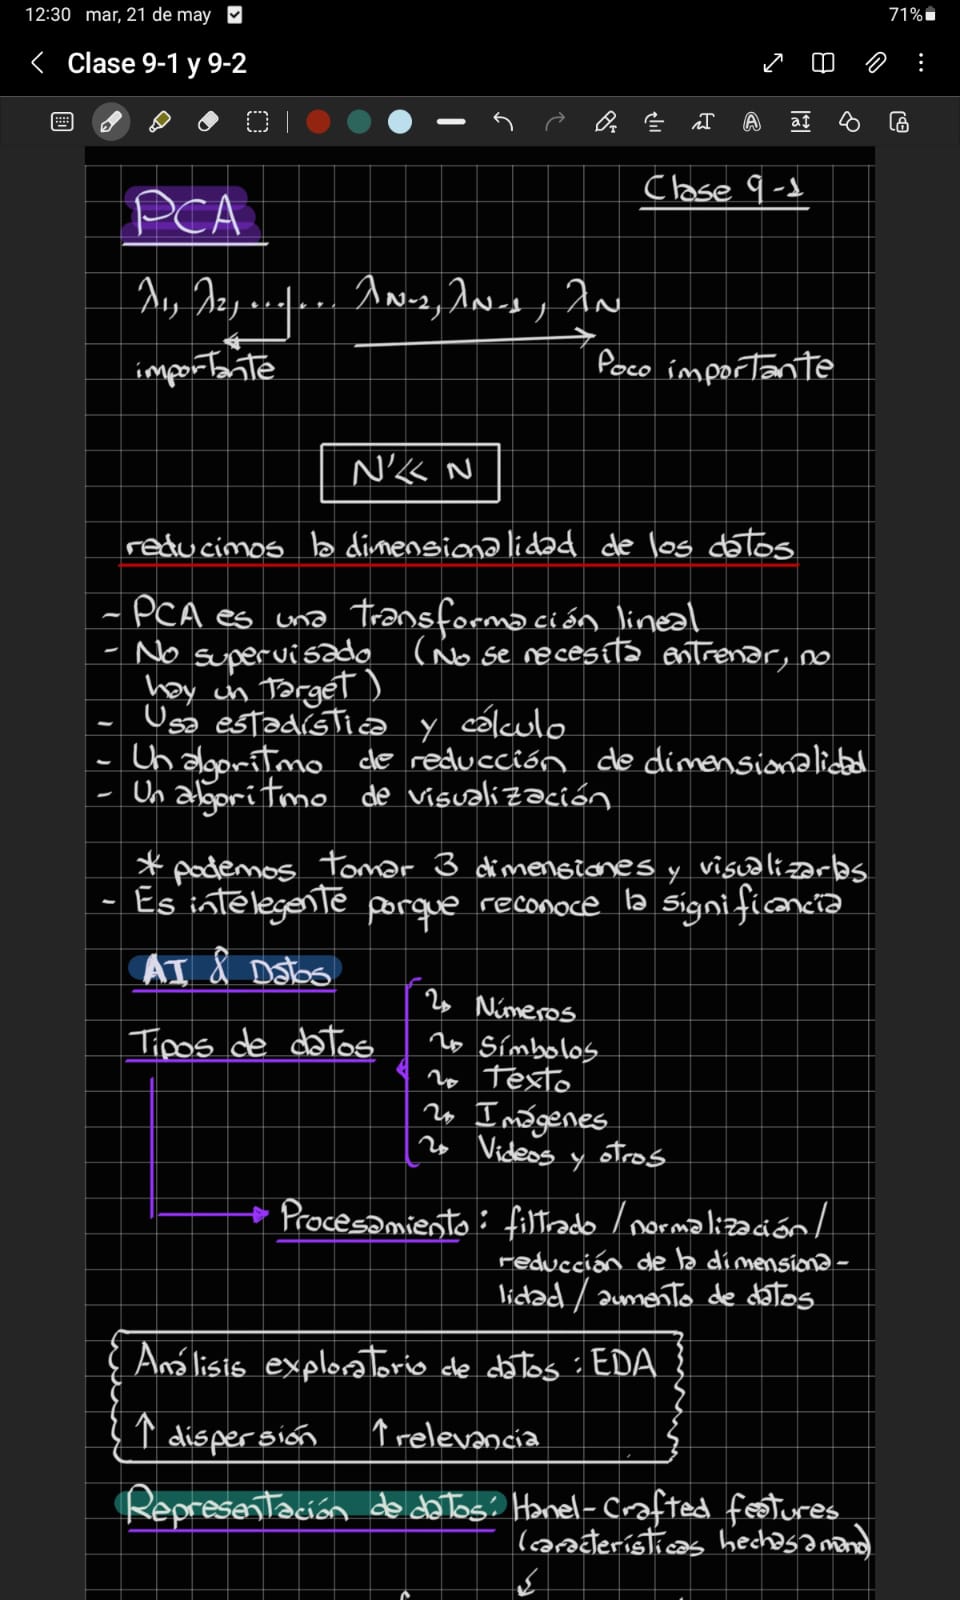 12:30 mar, 21 de may 71%
Clase 9-1 y 9-2
Clase 9-1
PCA
λ1, λ2, ...|... λN-2, λN-1, λN
importante
Poco importante
N' << N
reducimos la dimensionalidad de los datos
- PCA es una transformación lineal
- No supervisado (No se necesita entrenar, no
hay un Target)
- Usa estadística y cálculo
- Un algoritmo de reducción de dimensionalidad
- Un algoritmo de visualización
* podemos tomar 3 dimensiones y visualizarlas
- Es intelegente porque reconoce la significancia
AI & Datos
Tipos de datos
Números
Símbolos
Texto
Imágenes
Videos y otros
Procesamiento: filtrado / normalización /
reducción de la dimensiona-
lidad / aumento de datos
Análisis exploratorio de datos: EDA
↑ dispersión ↑ relevancia
Representación de datos: Hanel-Crafted features
(características hechas a mano)